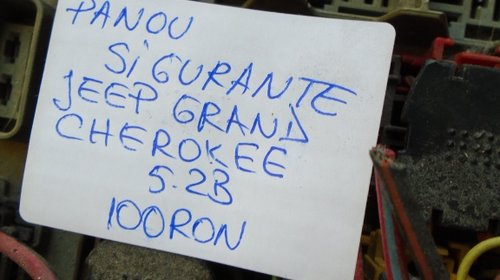 PANOU
SiGURANTE
JEEP GRAND
CHEROKEE
5.2B
100RON